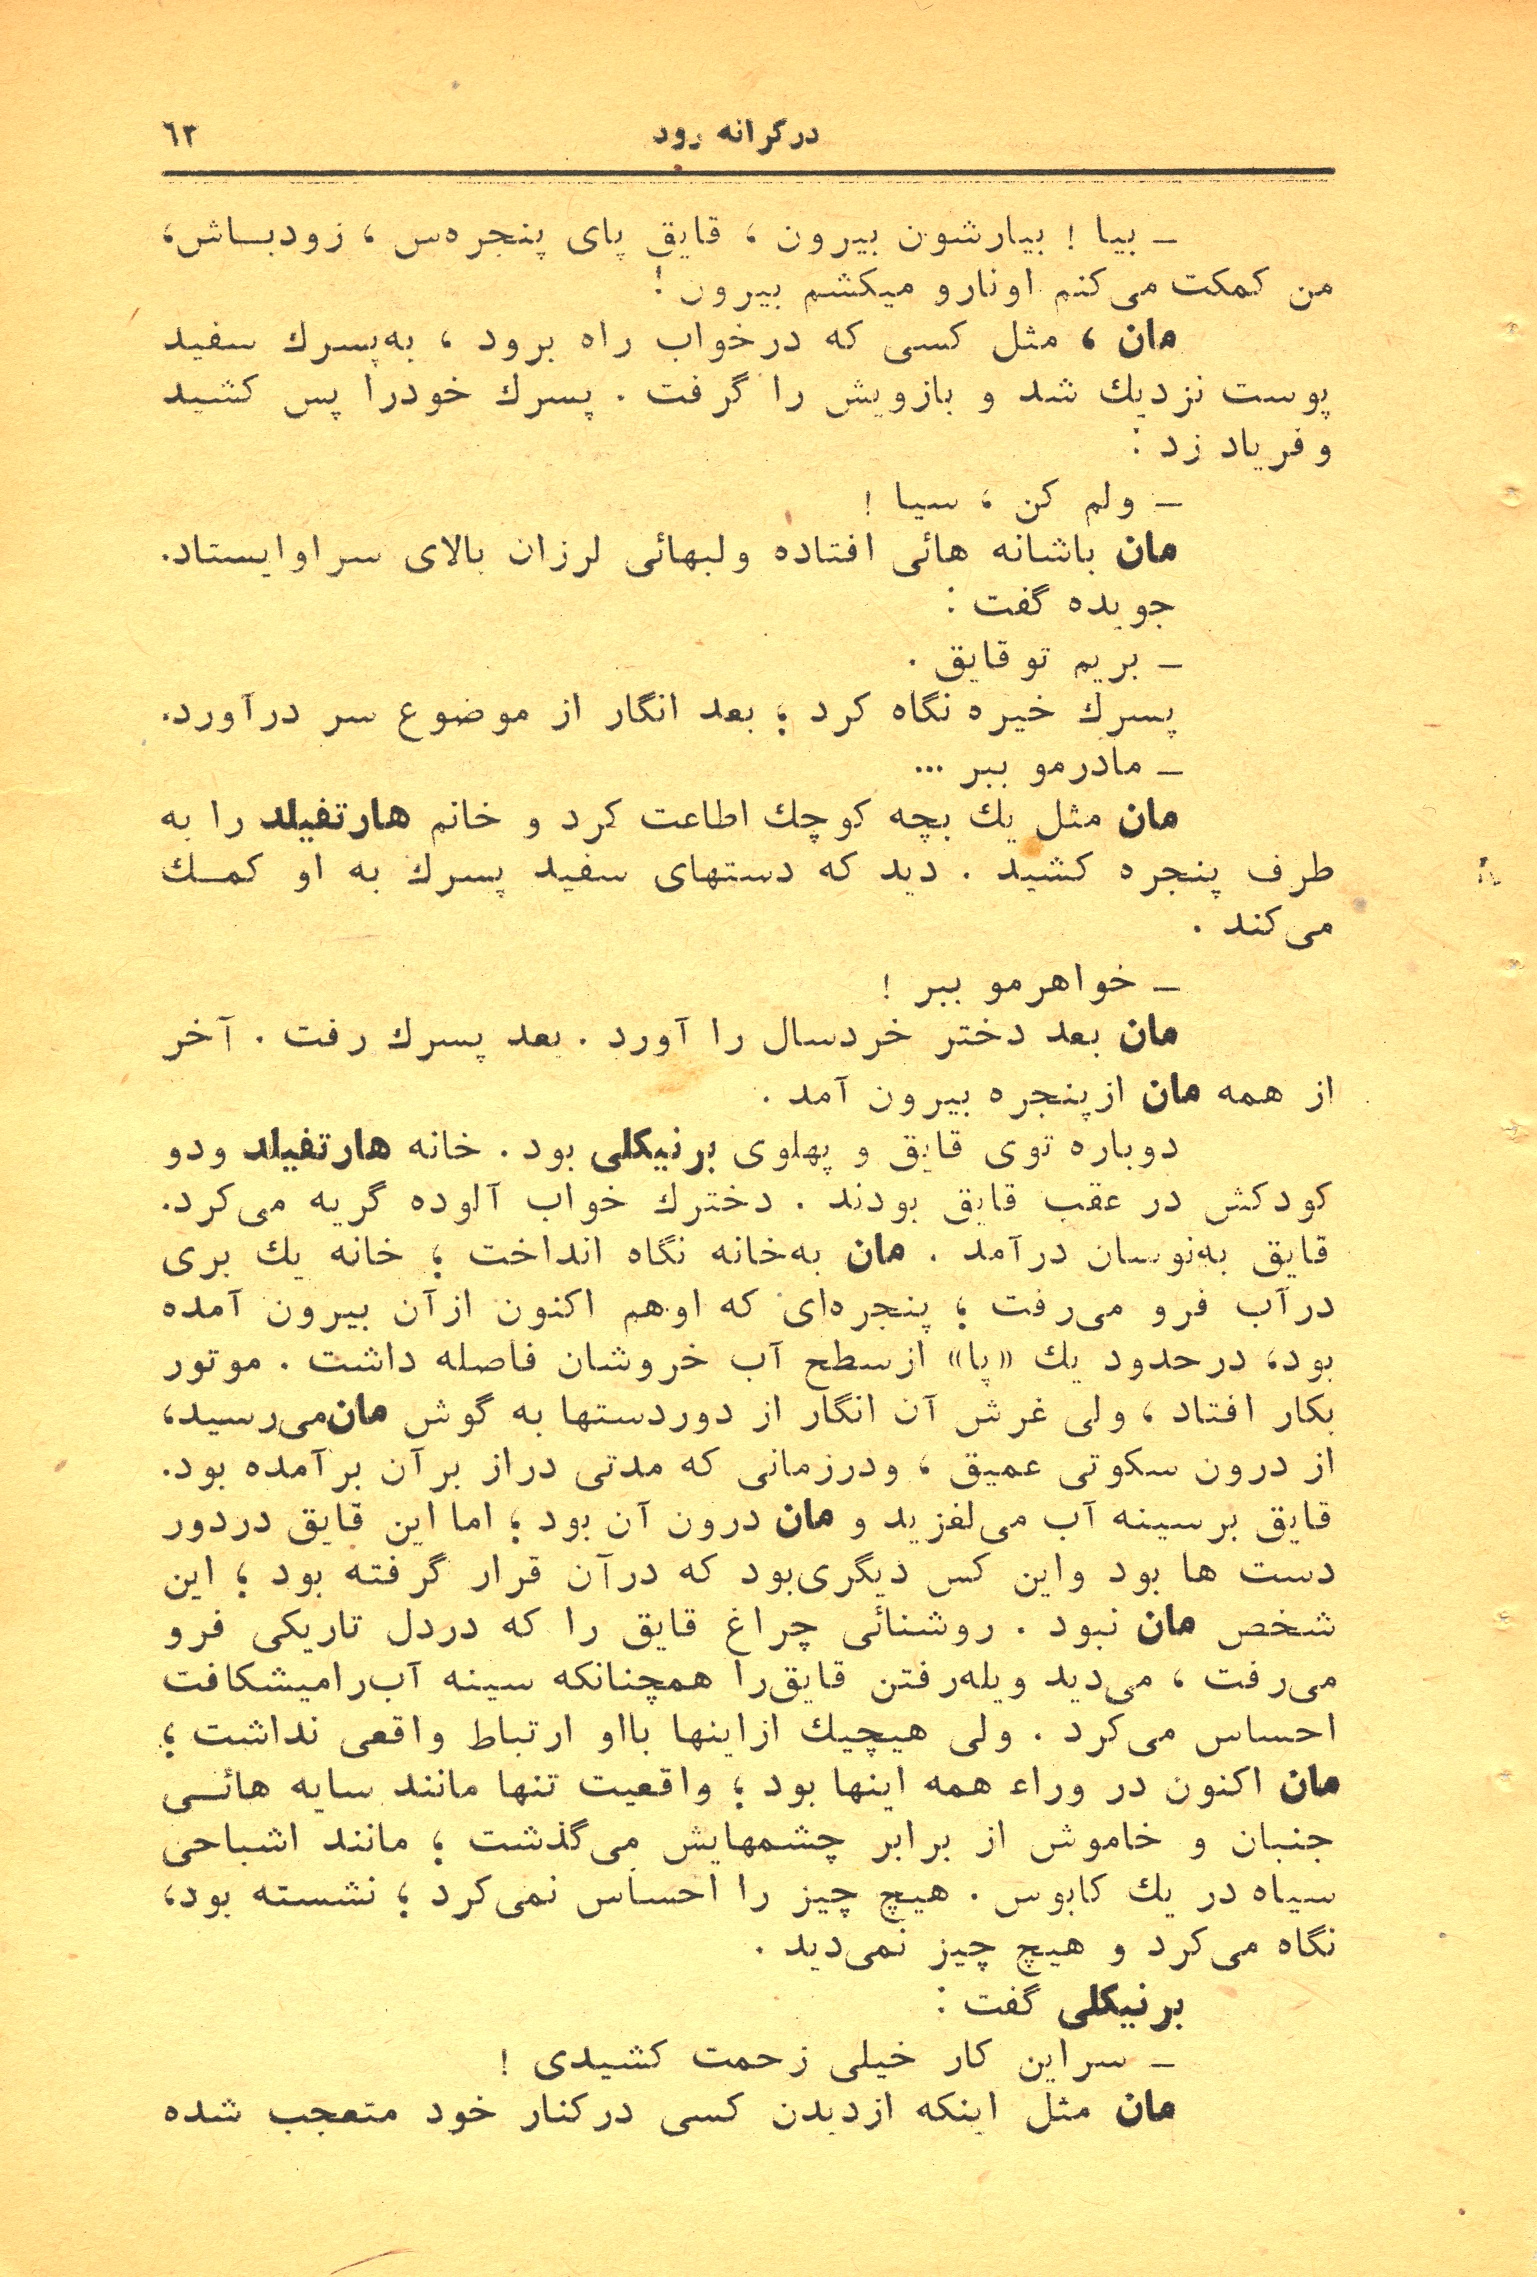 درکرانه رود ٦٣
ـ بیا ! بیارشون بیرون ، قایق پای پنجره‌س ، زودبـاش،
من کمکت می‌کنم اونارو میکشم بیرون !
مان ، مثل کسی که درخواب راه برود ، به‌پسرك سفید
پوست نزدیك شد و بازویش را گرفت . پسرك خودرا پس کشید
وفریاد زد :
ـ ولم کن ، سیا !
مان باشانه هائی افتاده ولبهائی لرزان بالای سراوایستاد.
جویده گفت :
ـ بریم توقایق .
پسرك خیره نگاه کرد ؛ بعد انگار از موضوع سر درآورد.
ـ مادرمو ببر ...
مان مثل یك بچه کوچك اطاعت کرد و خانم هارتفیلد را به
طرف پنجره کشید . دید که دستهای سفید پسرك به او کمـك
می‌کند .
ـ خواهرمو ببر !
مان بعد دختر خردسال را آورد . بعد پسرك رفت . آخر
از همه مان ازپنجره بیرون آمد .
دوباره توی قایق و پهلوی برنیکلی بود . خانه هارتفیلد ودو
کودکش در عقب قایق بودند . دخترك خواب آلوده گریه می‌کرد.
قایق به‌نوسان درآمد . مان به‌خانه نگاه انداخت ؛ خانه یك بری
درآب فرو می‌رفت ؛ پنجره‌ای که اوهم اکنون ازآن بیرون آمده
بود، درحدود یك «پا» ازسطح آب خروشان فاصله داشت . موتور
بکار افتاد ، ولی غرش آن انگار از دوردستها به گوش مان‌می‌رسید،
از درون سکوتی عمیق ، ودرزمانی که مدتی دراز برآن برآمده بود.
قایق برسینه آب می‌لغزید و مان درون آن بود ؛ اما این قایق دردور
دست ها بود واین کس دیگری‌بود که درآن قرار گرفته بود ؛ این
شخص مان نبود . روشنائی چراغ قایق را که دردل تاریکی فرو
می‌رفت ، می‌دید ویله‌رفتن قایق‌را همچنانکه سینه آب‌رامیشکافت
احساس می‌کرد . ولی هیچیك ازاینها بااو ارتباط واقعی نداشت ؛
مان اکنون در وراء همه اینها بود ؛ واقعیت تنها مانند سایه هائـی
جنبان و خاموش از برابر چشمهایش می‌گذشت ؛ مانند اشباحی
سیاه در یك کابوس . هیچ چیز را احساس نمی‌کرد ؛ نشسته بود،
نگاه می‌کرد و هیچ چیز نمی‌دید .
برنیکلی گفت :
ـ سراین کار خیلی زحمت کشیدی !
مان مثل اینکه ازدیدن کسی درکنار خود متعجب شده